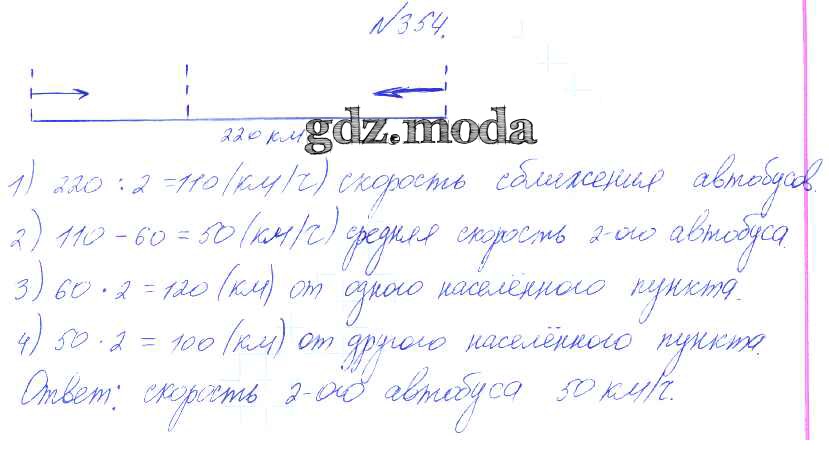 №354.
220 км
gdz.moda
1) 220 : 2 = 110 (км/ч) скорость сближения автобусов.
2) 110 – 60 = 50 (км/ч) средняя скорость 2-ого автобуса.
3) 60 · 2 = 120 (км) от одного населённого пункта.
4) 50 · 2 = 100 (км) от другого населённого пункта.
Ответ: скорость 2-ого автобуса 50 км/ч.